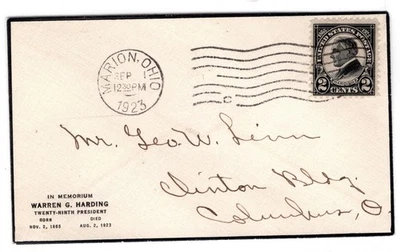 MARION, OHIO
SEP 1
12 30 PM
1923
UNITED STATES POSTAGE
2 CENTS 2
Mr. Geo. W. Linn
Clinton Bldg.
Columbus, O.
IN MEMORIUM
WARREN G. HARDING
TWENTY-NINTH PRESIDENT
BORN DIED
NOV. 2, 1865 AUG. 2, 1923